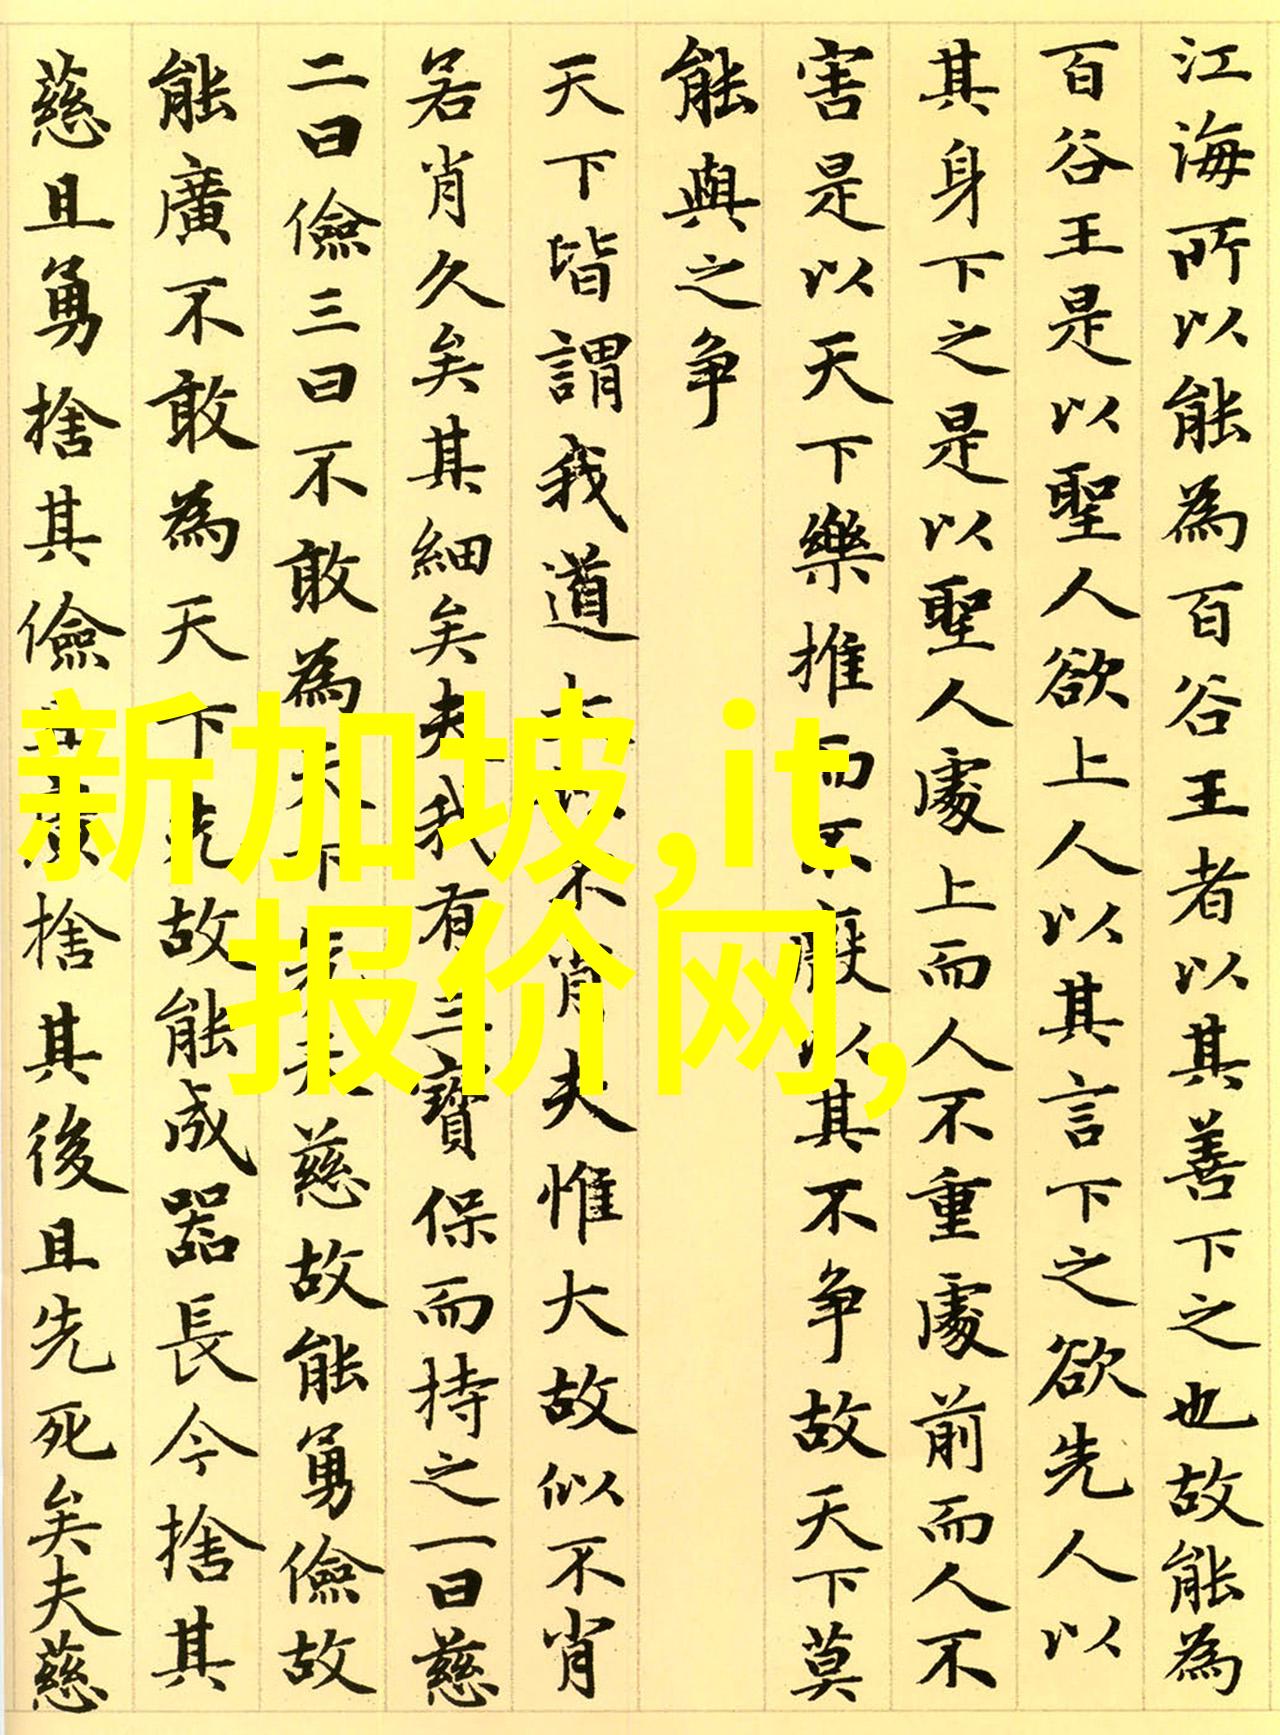 江海所以能為百谷王者以其善下之也故能為
百谷王是以聖人欲上人以其言下之欲先人以
其身下之是以聖人處上而人不重處前而人不
害是以天下樂推而不厭以其不争故天下莫
能與之争
天下皆謂我道大似不肖夫惟大故似不肖
若肖久矣其細矣夫我有三寶保而持之一曰慈
二曰儉三曰不敢為天下先夫慈故能勇儉故
能廣不敢為天下先故能成器長今捨其
慈且勇捨其儉且廣捨其後且先死矣夫慈
新加坡,it
报价网,